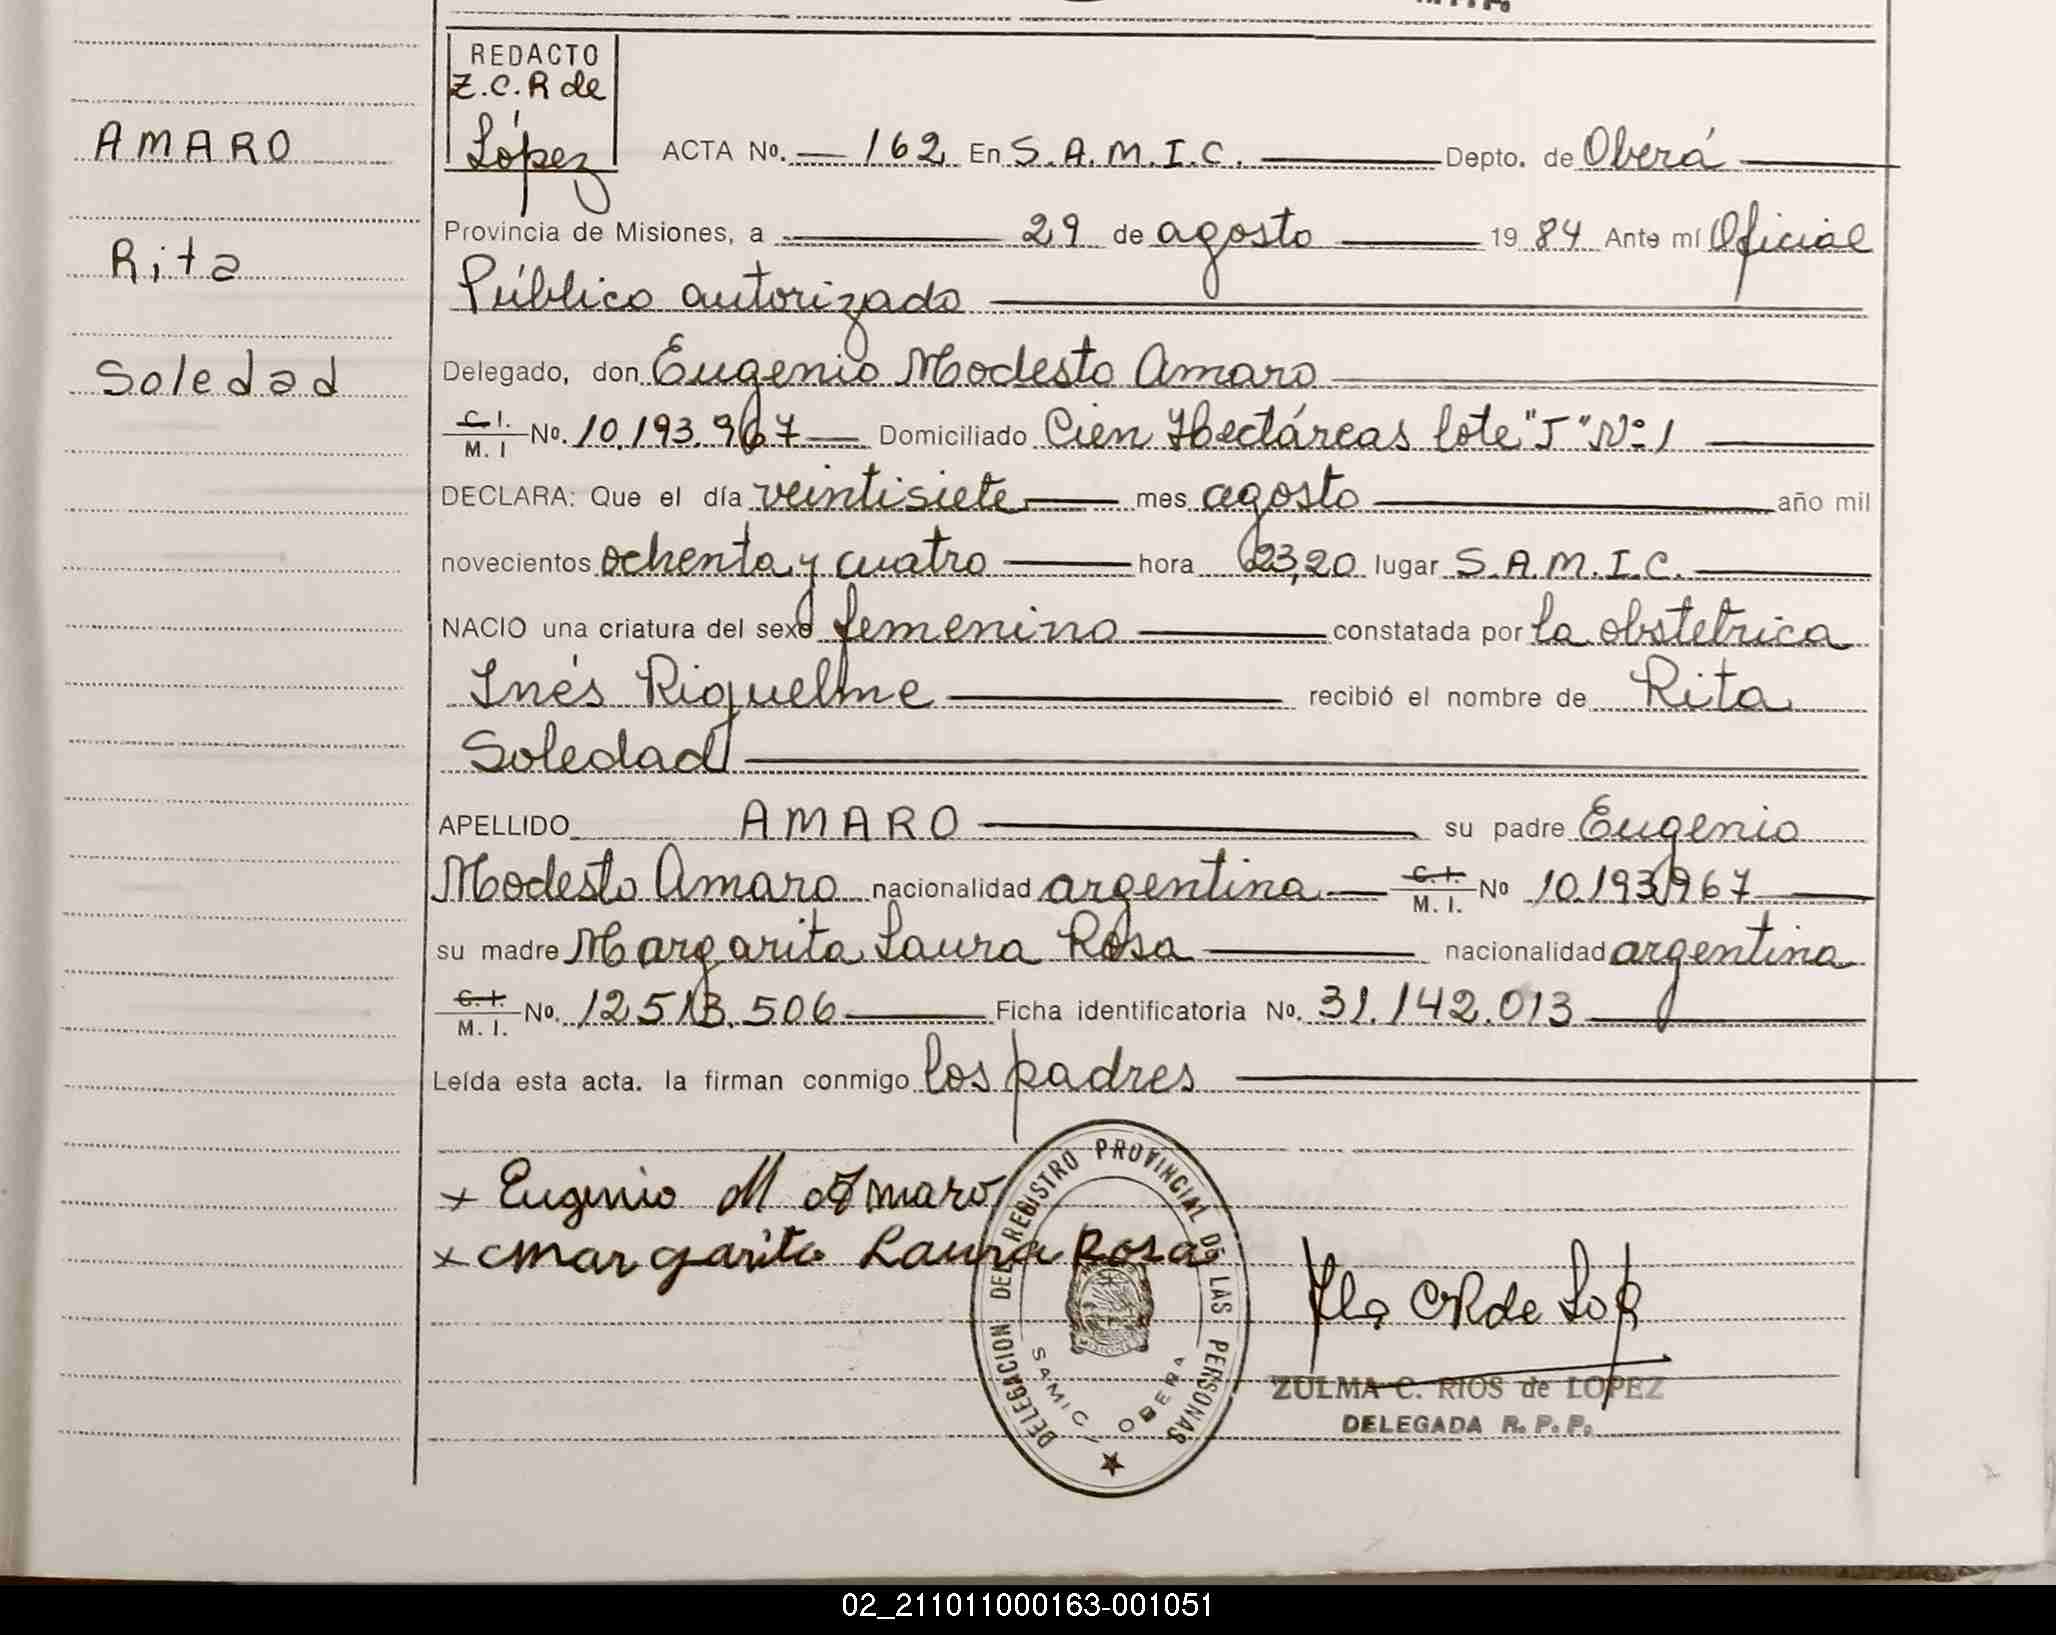 REDACTO
Z.C.R de
López
AMARO
Rita
Soledad
ACTA No. 162 En S.A.M.I.C. Depto. de Oberá
Provincia de Misiones, a 29 de agosto 1984 Ante mí Oficial
Público autorizado
Delegado, don Eugenio Modesto Amaro
C.I. M.I No. 10.193.967 Domiciliado Cien Hectáreas lote "J" Nº 1
DECLARA: Que el día veintisiete mes agosto año mil
novecientos ochenta y cuatro hora 23,20 lugar S.A.M.I.C.
NACIO una criatura del sexo femenino constatada por la obstetrica
Inés Riquelme recibió el nombre de Rita
Soledad
APELLIDO AMARO su padre Eugenio
Modesto Amaro nacionalidad argentina C.I. M.I. No 10.193.967
su madre Margarita Laura Rosa nacionalidad argentina
C.I. M.I. No. 12.513.506 Ficha identificatoria No. 31.142.013
Leída esta acta. la firman conmigo los padres
x Eugenio M Amaro
x Margarita Laura Rosa
DELEGACION DEL REGISTRO PROVINCIAL DE LAS PERSONAS
SAMIC / OBERA
MISIONES
ZULMA C. RIOS de LOPEZ
DELEGADA R.P.P.
02_211011000163-001051